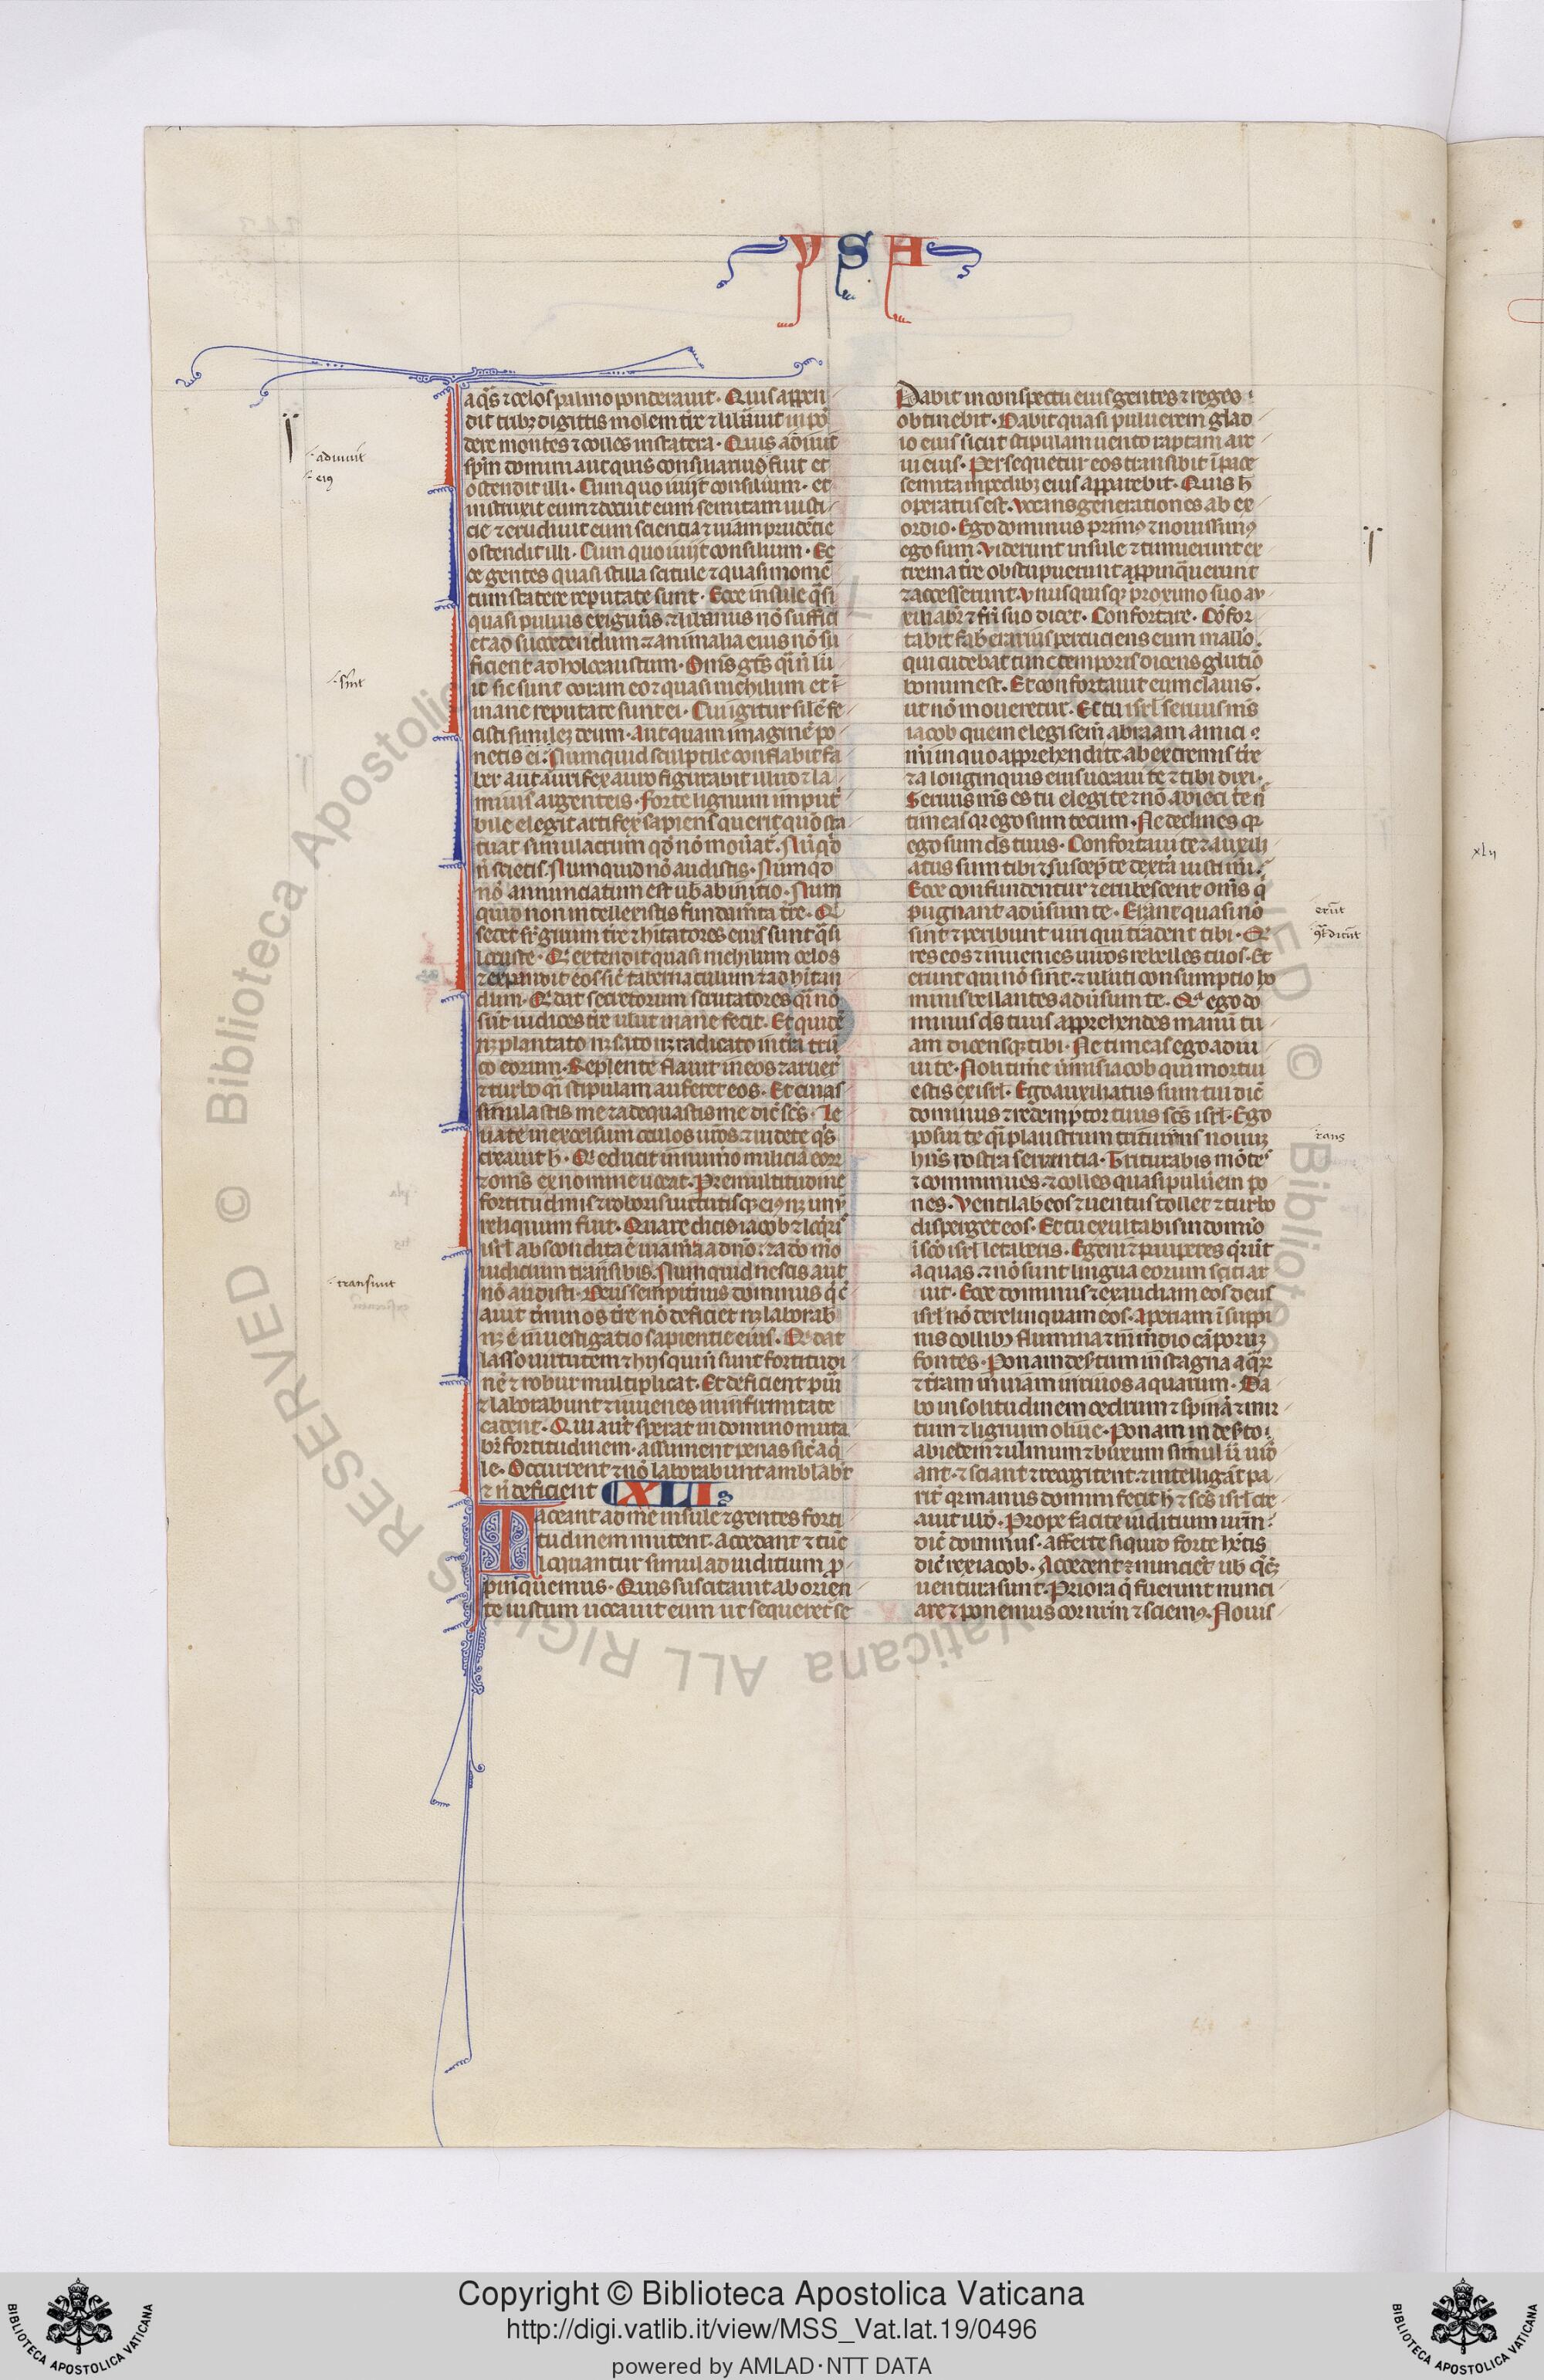 YSA
aq̄s ⁊ celos palmo ponderauit. Quis appen
dit tribꝫ digittis molem tr̄e ⁊ libᵃuit in pō
dere montes ⁊ colles in statera. Quis adiuuit
sp̄m domini aut quis consiliarius fuit et
ostendit illi. Cum quo iniit consilium. et
instruxit eum ⁊ docuit eum semitam iusti
cie ⁊ erudiuit eum scientiā ⁊ uiam prudētie
ostendit illi. Cum quo iniit consilium. Ec
ce gentes quasi stilla scitule ⁊ quasi momē
tum statere reputate sunt. Ecce insule q̄si
quasi puluis exiguus ⁊ libanus nō suffici
et ad succendendum ⁊ animalia eius nō su
ficient ad holocaustum. Om̄s gēs q̄i n̄
it sic sunt coram eo ⁊ quasi nichilum et ī
mane reputate sunt ei. Cui igitur silē fe
cisti similēz deum. aut quam imaginē po
netis ei. Numquid sculptile conflabit fa
ber aut aurifex auro figurabit illud ⁊ la
minis argenteis. forte lignum input̄
bile elegit artifex sapiens querit quō sta
tuat simulacrum qd nō mouāt. Nūqd
n̄ scietis. Numquid nō audistis. Numqd
nō annunciatum est uob ab initio. Num
quid non intellexistis fundamēta tr̄e. Q
sedet sr̄ girum tr̄e ⁊ hitatores eius sunt q̄si
locuste. Qi extendit quasi nichilum celos
⁊ expandit eos sic̄ tabernaculum ⁊ ad hitan
dum. Qi dat secretorum scrutatores q̄i nō
sint iudices tr̄e uelut inane fecit. Et quidē
nꝫ plantato nꝫ sato nꝫ radicato in tr̄a trū
co eorum. Repente flauit in eos ⁊ aruer̄
⁊ turbo q̄i stipulam auferet eos. Et cui as
similastis me ⁊ adequastis me dic̄ sc̄s. Le
uate in excelsum oculos uros ⁊ uidete q̄s
creauit h̄. Qi educit in numo miliciā eorꝝ
⁊ om̄s ex nomine uocat. Pre multitudine
fortitudinis ⁊ roboris uirtutisqꝫ eiꝰ nꝫ unū
reliquum fuit. Quare dicis iacob ⁊ loq̄ris
isrl̄ abscondita ē uia m̄a a dn̄o ⁊ a dō mō
iudicium transibis. Numquid nescis aut
nō audisti. Deus sempitn̄us dominus q̄i c̄
auit tm̄inos tr̄e nō deficiet nꝫ laborab
nꝫ ē inuestigatio sapientie eius. Qi dat
lasso uirtutem ⁊ hijs qui n̄ sunt fortitudi
nē ⁊ robur multiplicat. Et deficient pūi
⁊ laborabunt ⁊ iuuenes in infirmitate
cadent. Qui aūt sperat in domino muta
bt̄ fortitudinem. assument penas sic̄ aq̄
le. Occurrent ⁊ nō laborabunt amblabt̄
⁊ n̄ deficient XLI
Taceant ad me insule ⁊ gentes forti
tudinem mutent. accedant ⁊ tūc
loquantur simul ad iudicium ꝓ
pinquemus. Quis suscitauit ab orien
te iustum uocauit eum ut sequeret̄ se
Dabit in conspectu eius gentes ⁊ reges
obtinebit. Dabit quasi puluerem glad
io eius sicut stipulam uento raptam arc
ui eius. Persequetur eos transibit ī pace
semita in pedibꝫ eius apparebit. Quis h̄
operatus est. uocans generationes ab ex
ordio. Ego dominus primꝰ ⁊ nouissimꝰ
ego sum. Viderunt insule ⁊ timuerunt ex
trema tr̄e obstupuerunt appinq̄uerunt
⁊ accesserunt. Vnusquisqꝫ proximo suo au
xiliabt̄ ⁊ fr̄i suo dicet. Confortare. Cōfor
tabit faber erarius percuciens eum malleo.
qui cudebat tunc temporis dicens glutiō
bonum est. Et confortauit eum clauis.
ut nō moueretur. Et tu isrl̄ seruus m̄s
iacob quem elegi sem̄ abraam amici
mi in quo apprehendi te ab extremis tr̄e
⁊ a longinquis eius uocaui te ⁊ tibi dixi.
Seruus m̄s es tu elegi te ⁊ nō abieci te n̄
timeas qꝛ ego sum tecum. Ne declines qꝛ
ego sum ds̄ tuus. Confortaui te ⁊ auxili
atus sum tibi ⁊ suscepit te dextera iusti mi.
Ecce confundentur ⁊ erubescent om̄s q̄i
pugnant aduersum te. Erant quasi nō
sint ⁊ peribunt uiri qui tradent tibi. Q
res eos ⁊ inuenies uiros rebelles tuos. Et
erunt qui nō sint. ⁊ ueluti consumptio ho
minis bellantes aduersum te. Qᵃ ego do
minus ds̄ tuus apprehendes manū tu
am dicensqꝫ tibi. Ne timeas ego adiu
ui te. Noli time uermis iacob qui mortui
estis ex isrl̄. Ego auxiliatus sum tui dic̄
dominus ⁊ redemptor tuus sc̄s isrl̄. Ego
posui te q̄i plaustrum triturans nouūz
hn̄s rostra serrentia. Triturabis mōtes
⁊ comminues. ⁊ colles quasi puluerem po
nes. Ventilab eos ⁊ uentus tollet ⁊ turbo
disperget eos. Et tu exultabis in domino
ī sc̄o isrl̄ letaberis. Egeni ⁊ pauperes q̄rūt
aquas. ⁊ nō sunt lingua eorum siti ar
uit. Ecce dominus ⁊ exaudiam eos deus
isrl̄ nō derelinquam eos. Aperiam ī suppi
nis collibꝫ flumina ⁊ in medio cāporum
fontes. Ponam des̄tum in stagna aquaꝝ
⁊ tr̄am in uiam in riuos aquarum. Da
bo in solitudinem cedrum ⁊ spinā ⁊ mir
tum ⁊ lignum oliue. Ponam in des̄to.
abietem ⁊ ulmum ⁊ buxum simul ut uid
ant. ⁊ sciant ⁊ recogitent. ⁊ intelligāt pa
rit̄ qꝛ manus domini fecit h̄ ⁊ sc̄s isrl̄ cre
auit illd. Prope facite iudicium ur̄m.
dic̄ dominus. afferte siquid forte hetis
dic̄ rex iacob. Accedent ⁊ nuncient̄ ub q̄cꝫ
uentura sunt. Priora q̄ fuerunt nunci
are ⁊ ponemus cor nr̄m ⁊ sciemꝰ. Nouis
adiuuit
eiꝰ
sunt
transiuit
erūt
9t̄dicūt
rans
xlij
Copyright © Biblioteca Apostolica Vaticana
http://digi.vatlib.it/view/MSS_Vat.lat.19/0496
powered by AMLAD·NTT DATA
BIBLIOTECA APOSTOLICA VATICANA
BIBLIOTECA APOSTOLICA VATICANA
© Biblioteca Apostolica Vaticana ALL RIGHTS RESERVED